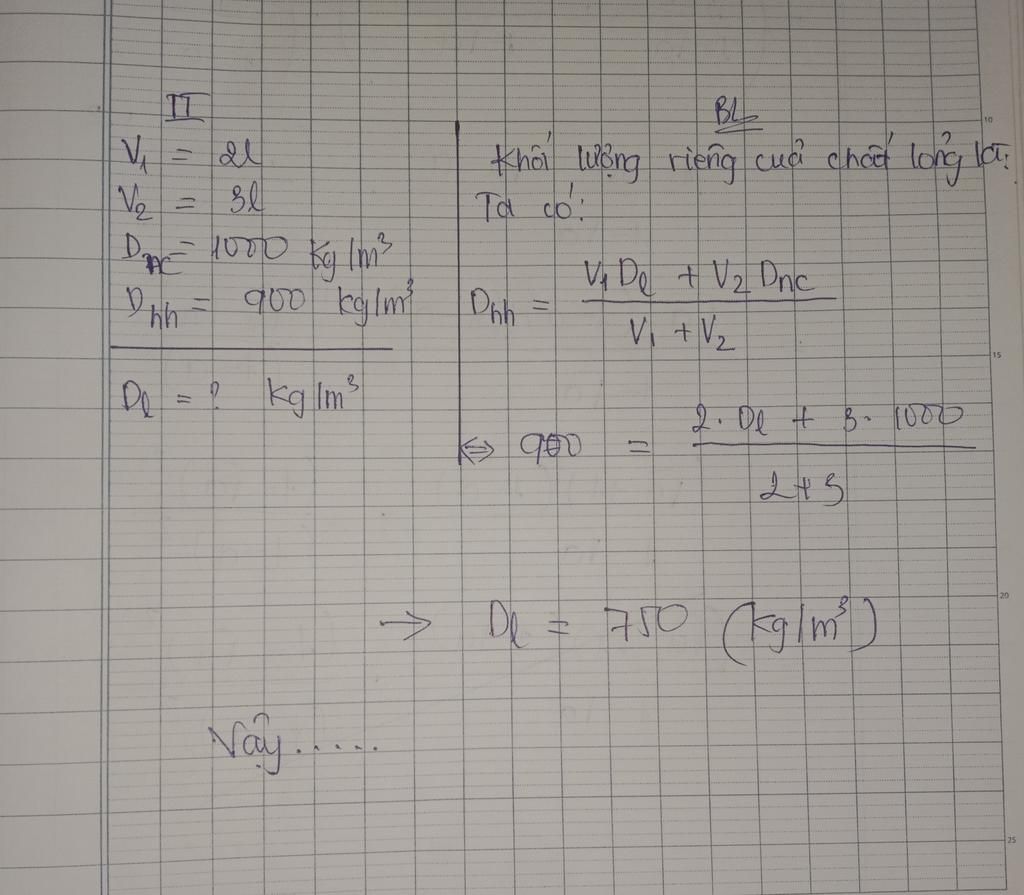 TT
V₁ = 2l
V₂ = 3l
Dnc = 1000 kg/m³
Dhh = 900 kg/m³
Dl = ? kg/m³
BL
Khối lượng riêng của chất lỏng là:
Ta có:
Dhh = (V₁Dl + V₂Dnc) / (V₁ + V₂)
⇔ 900 = (2. Dl + 3. 1000) / (2 + 3)
→ Dl = 750 (kg/m³)
Vậy.....
10
15
20
25